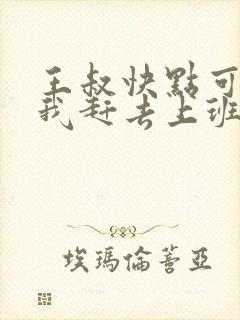 王叔快點可
我赶去上班
埃瑪倫蒈亞